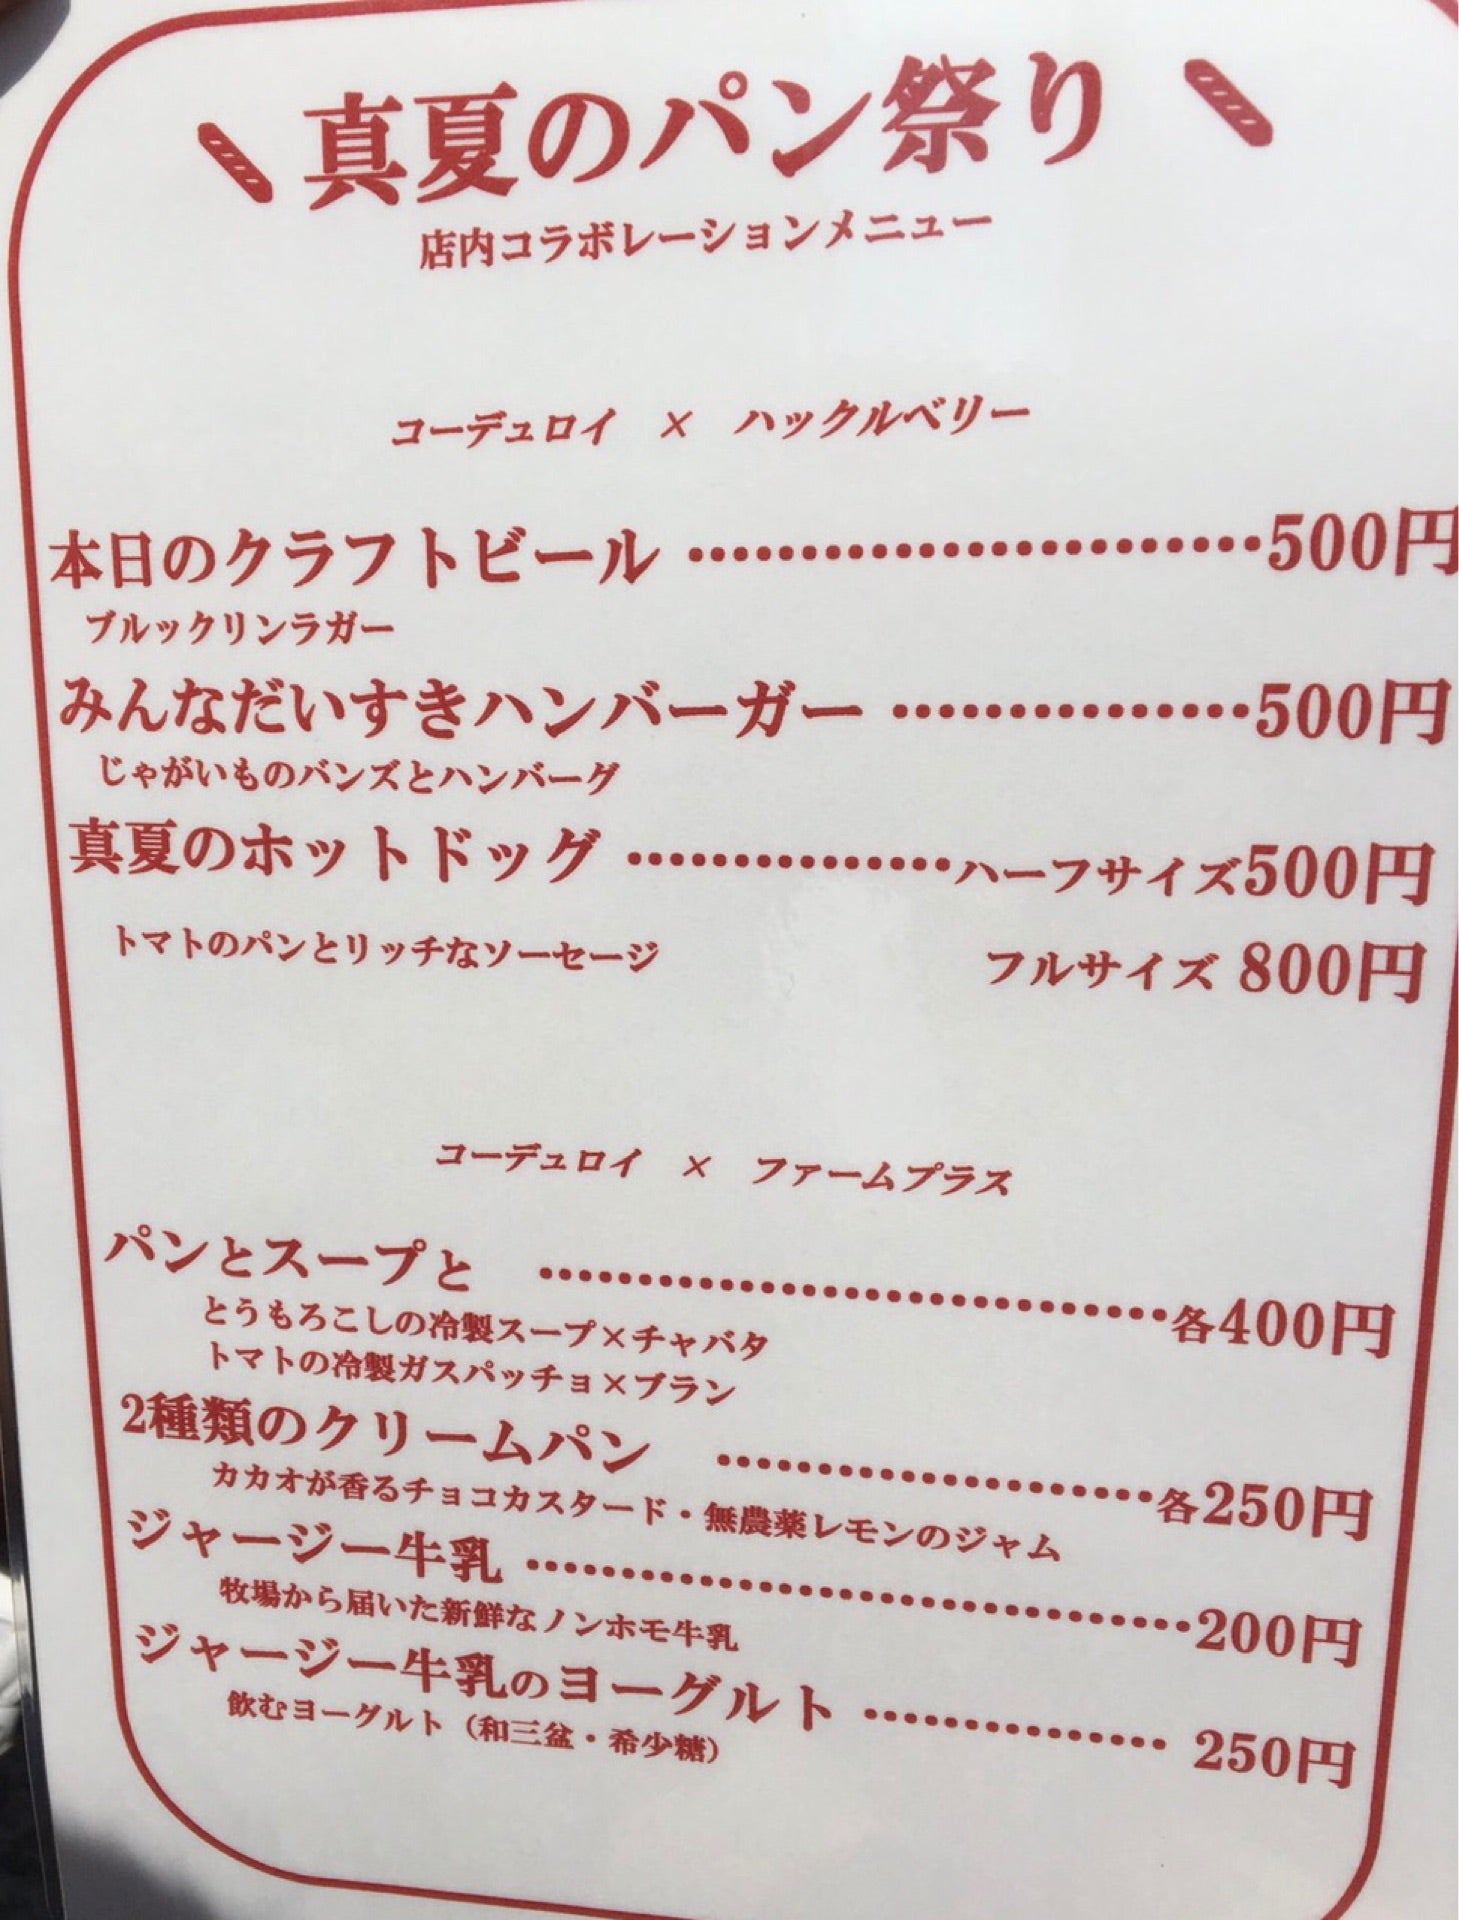 真夏のパン祭り
店内コラボレーションメニュー
コーデュロイ × ハックルベリー
本日のクラフトビール ……………………500円
ブルックリンラガー
みんなだいすきハンバーガー ……………500円
じゃがいものバンズとハンバーグ
真夏のホットドッグ ……………ハーフサイズ500円
トマトのパンとリッチなソーセージ フルサイズ 800円
コーデュロイ × ファームプラス
パンとスープと ……………………各400円
とうもろこしの冷製スープ×チャバタ
トマトの冷製ガスパッチョ×ブラン
2種類のクリームパン ………………各250円
カカオが香るチョコカスタード・無農薬レモンのジャム
ジャージー牛乳 ………………………200円
牧場から届いた新鮮なノンホモ牛乳
ジャージー牛乳のヨーグルト ………… 250円
飲むヨーグルト（和三盆・希少糖）